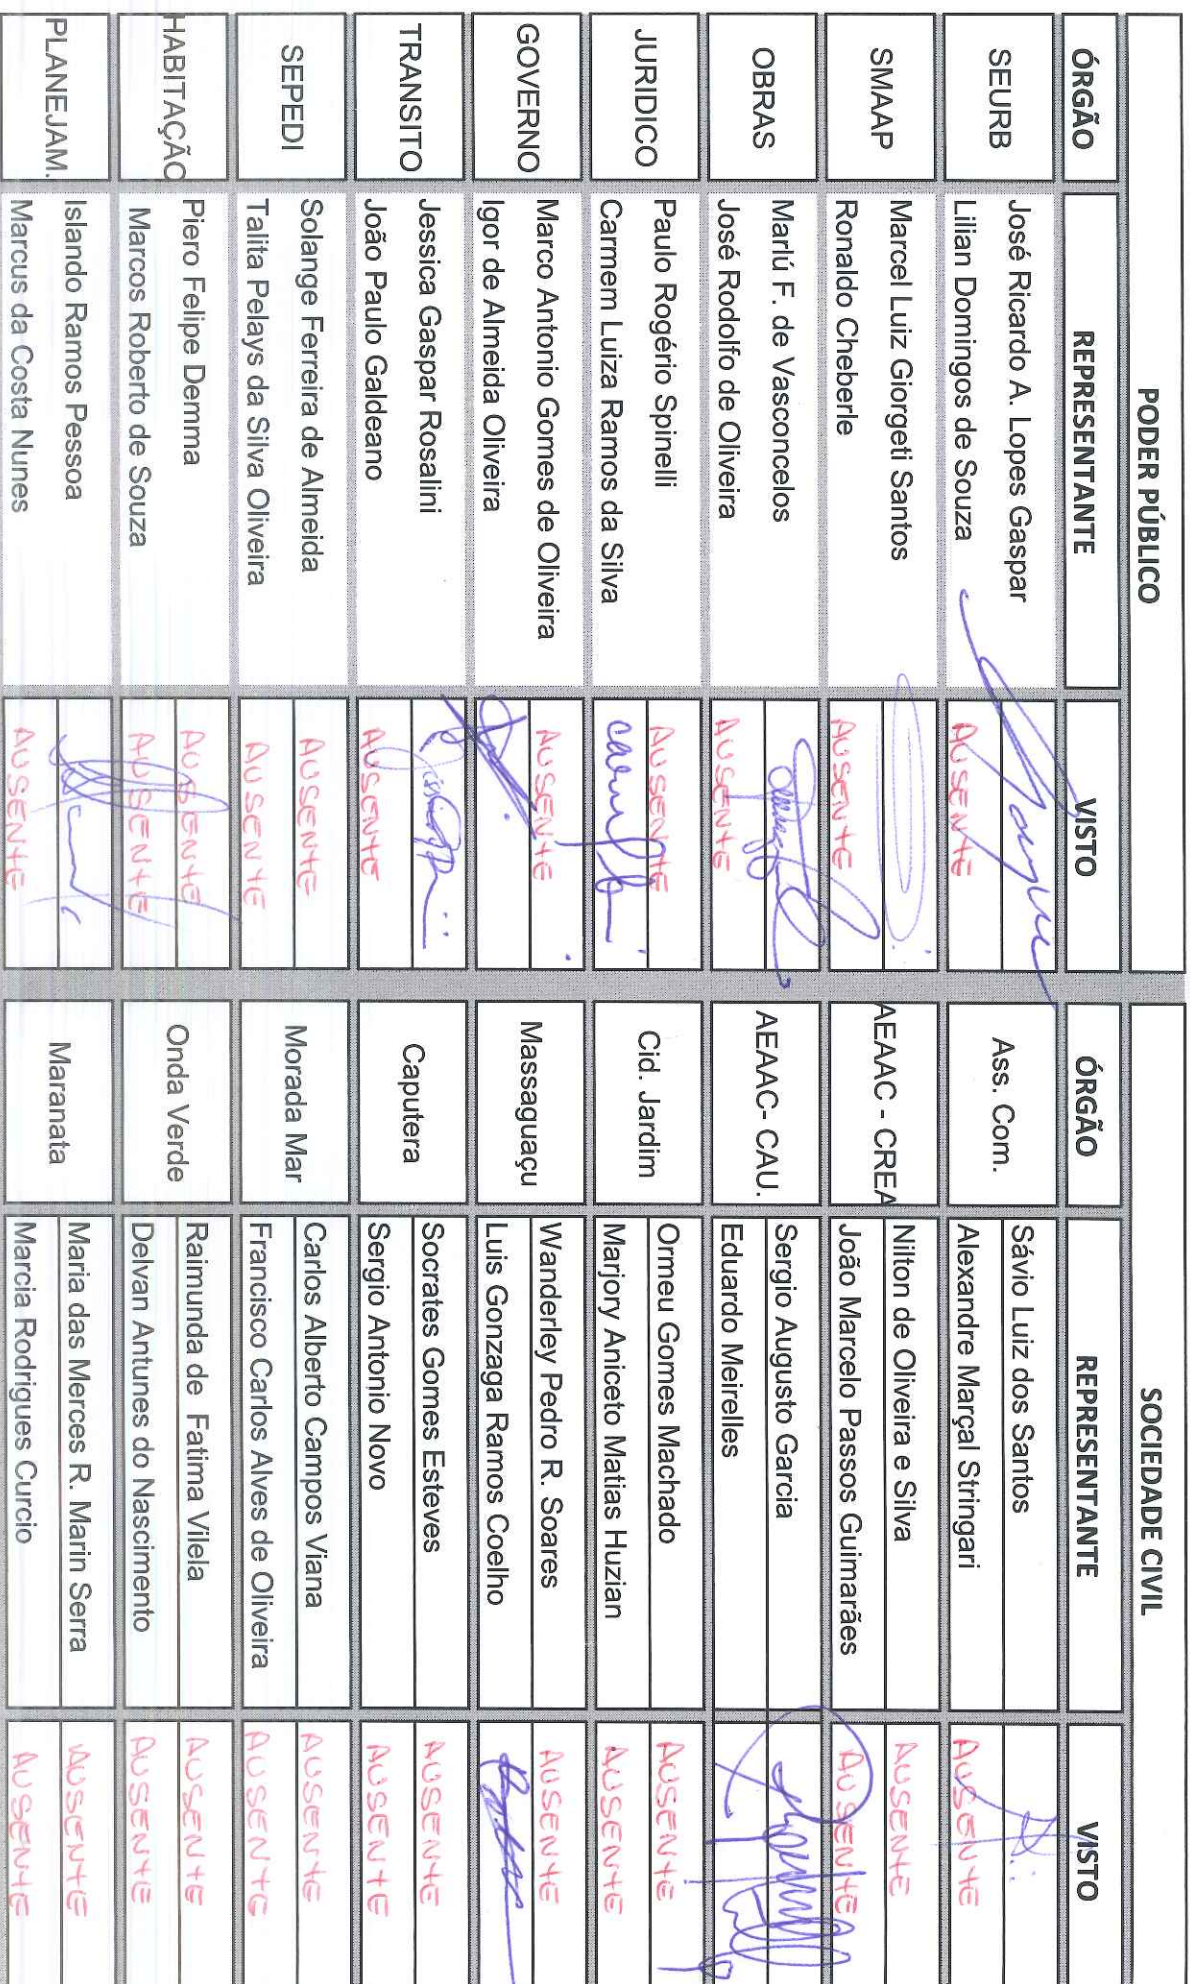 PODER PÚBLICO
ÓRGÃO REPRESENTANTE VISTO
SEURB
José Ricardo A. Lopes Gaspar
Lilian Domingos de Souza AUSENTE
SMAAP
Marcel Luiz Giorgeti Santos
Ronaldo Cheberle AUSENTE
OBRAS
Marlú F. de Vasconcelos
José Rodolfo de Oliveira AUSENTE
JURIDICO
Paulo Rogério Spinelli AUSENTE
Carmem Luiza Ramos da Silva
GOVERNO
Marco Antonio Gomes de Oliveira AUSENTE
Igor de Almeida Oliveira
TRANSITO
Jessica Gaspar Rosalini
João Paulo Galdeano AUSENTE
SEPEDI
Solange Ferreira de Almeida AUSENTE
Talita Pelays da Silva Oliveira AUSENTE
HABITAÇÃO
Piero Felipe Demma AUSENTE
Marcos Roberto de Souza AUSENTE
PLANEJAM.
Islando Ramos Pessoa
Marcus da Costa Nunes AUSENTE
SOCIEDADE CIVIL
ÓRGÃO REPRESENTANTE VISTO
Ass. Com.
Sávio Luiz dos Santos
Alexandre Marçal Stringari AUSENTE
AEAAC - CREA
Nilton de Oliveira e Silva AUSENTE
João Marcelo Passos Guimarães AUSENTE
AEAAC- CAU.
Sergio Augusto Garcia
Eduardo Meirelles
Cid. Jardim
Ormeu Gomes Machado AUSENTE
Marjory Aniceto Matias Huzian AUSENTE
Massaguaçu
Wanderley Pedro R. Soares AUSENTE
Luis Gonzaga Ramos Coelho
Caputera
Socrates Gomes Esteves AUSENTE
Sergio Antonio Novo AUSENTE
Morada Mar
Carlos Alberto Campos Viana AUSENTE
Francisco Carlos Alves de Oliveira AUSENTE
Onda Verde
Raimunda de Fatima Vilela AUSENTE
Delvan Antunes do Nascimento AUSENTE
Maranata
Maria das Merces R. Marin Serra AUSENTE
Marcia Rodrigues Curcio AUSENTE